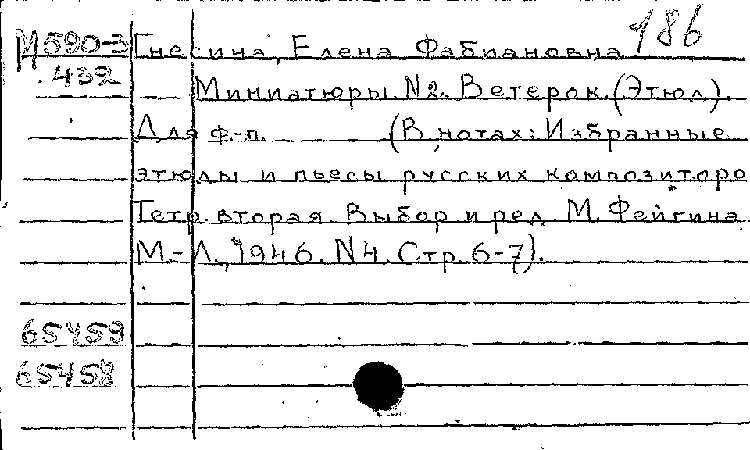 186
М590-3 Гнесина, Елена Фабиановна
.432 Миниатюры N2. Ветерок. (Этюд).
Для ф.-п. (В нотах: Избранные
этюды и пьесы русских композиторо
Тетр. вторая. Выбор и ред. М. Фейгина.
М.-Л., 1946. N4. Стр. 6-7).
65459
65458